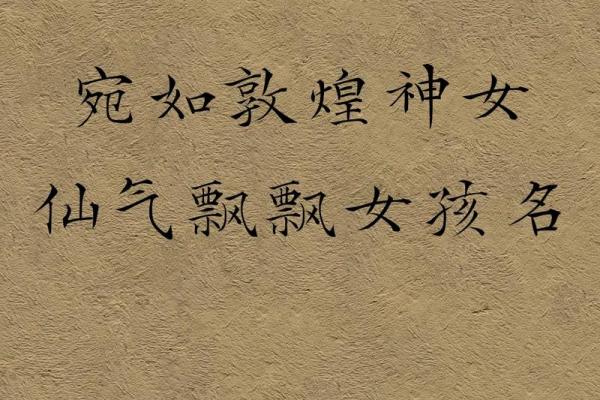 宛如敦煌神女
仙气飘飘女孩名